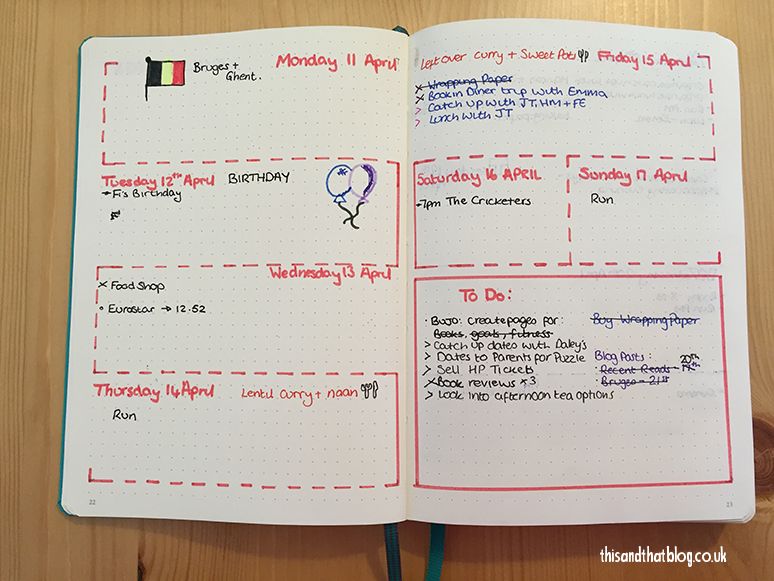 Bruges +
Ghent.
Monday 11 April
Tuesday 12th April BIRTHDAY
- Fi's Birthday
Wednesday 13 April
x Food Shop
Eurostar → 12.52
Thursday 14 April
Lentil Curry + naan
Run
22
Left over curry + Sweet Pot
Friday 15 April
x Wrapping Paper
x Book in Diner trip with Emma
> Catch up with JT, HM + FE
> Lunch with JT
Saturday 16 APRIL
- 7pm The Cricketers
Sunday 17 April
Run
To Do:
· BUJO: create pages for:
Books, goals, fitness
> Catch up dates with Daley's
> Dates to Parents for Puzzle
> Sell HP Tickets
x Book reviews x 3
> Look into afternoon tea options
Buy Wrapping Paper
Blog Posts:
20th
· Recent Reads - 19th
· Bruges - 21st
23
thisandthatblog.co.uk